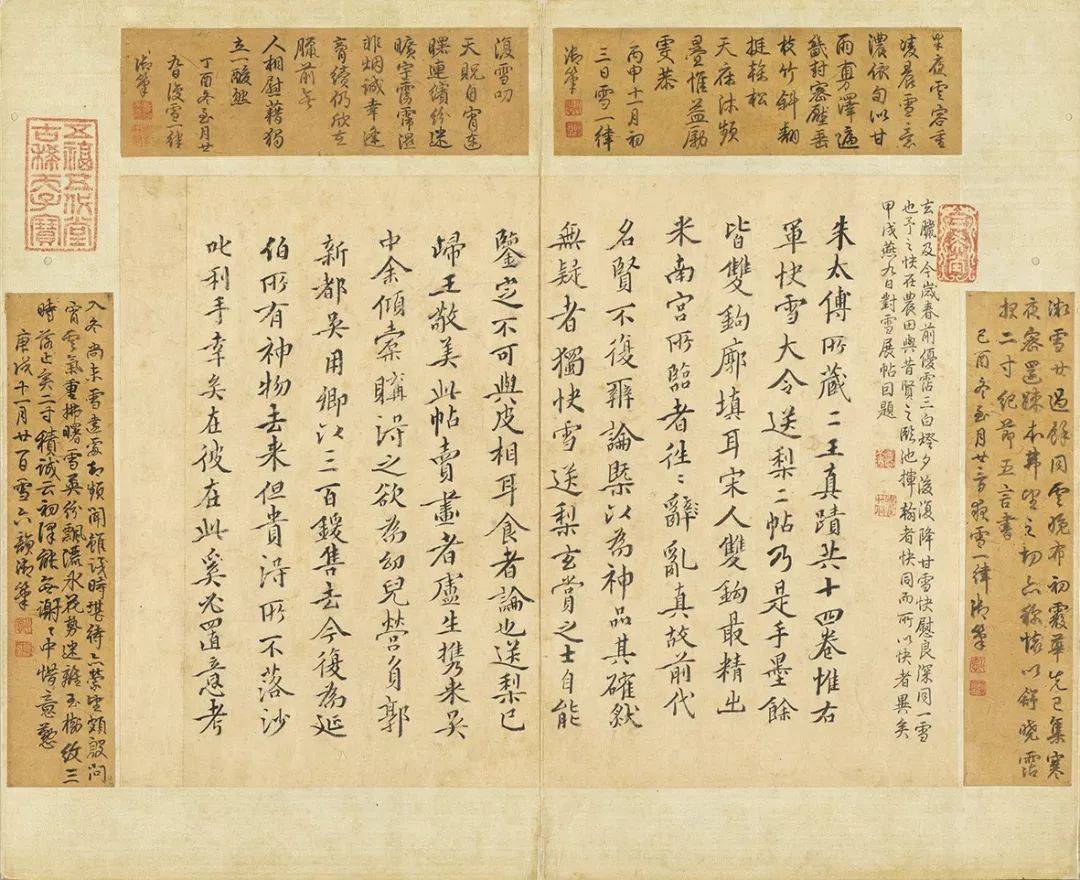 夜雲容重
凌晨雪意
濃依旬以甘
雨澤遍
畿封密壓垂
枝竹斜翻
挺榦松
天庥沐頻
疊惟益勵
虔恭
丙申十一月初
三日雪一律
御筆
復雪叨
天貺自宵達
曙連繽紛迷
曠宇靄霈混
非烟誠幸逢
膏續仍欣在
臘前無
人相慰藉獨
立一酸然
丁酉冬至月廿
九日復雪一律
御筆
雪廿過餘同雲晚布初霰華先已集寒
夜密還疎本藉望之切亦稱懷以舒曉霑
報二寸紀節五言書
己酉冬至月廿夜雪一律御筆
玄臘及今歲春前優霑三白燈夕後復降甘雪快慰良深同一雪
也予之快在農田與昔賢之臨池揮翰者快同而所以快者異矣
甲戌燕九日對雪展帖因題
朱太傅所藏二王真蹟共十四卷惟右
軍快雪大令送梨二帖乃是手墨餘
皆雙鉤廓填耳宋人雙鉤最精出
米南宮所臨者往々辭亂真故前代
名賢不復辨論槩以為神品其確然
無疑者獨快雪送梨玄賞之士自能
鑒定不可與皮相耳食者論也送梨已
歸王敬美此帖賣畫者盧生攜來吳
中余傾橐購得之欲為幼兒營負郭
新都吳用卿以三百鍰售去今復為延
伯所有神物去來但貴得所不落沙
叱利手幸矣在彼在此奚必置意考
入冬尚未雪遠處却頻聞雖淺時堪待亦縈望頗殷同
宵雲氣重拂曙雪英紛飄灑冰花勢迷離玉樹紋三
時落止亥二寸積誠云初澤能無謝々中惜意懃
庚戌十一月廿一日雪六韻御筆
五福五代堂
古稀天子寶